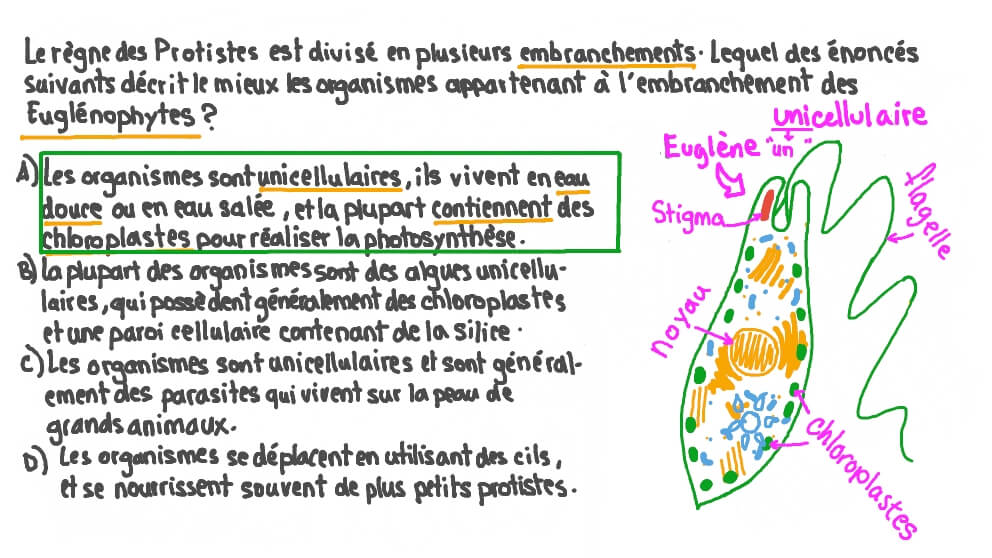 Le règne des Protistes est divisé en plusieurs embranchements. Lequel des énoncés
suivants décrit le mieux les organismes appartenant à l'embranchement des
Euglénophytes ?
A) Les organismes sont unicellulaires, ils vivent en eau
douce ou en eau salée, et la plupart contiennent des
chloroplastes pour réaliser la photosynthèse.
B) la plupart des organismes sont des algues unicellu-
laires, qui possèdent généralement des chloroplastes
et une paroi cellulaire contenant de la silice.
C) Les organismes sont unicellulaires et sont général-
ement des parasites qui vivent sur la peau de
grands animaux.
D) Les organismes se déplacent en utilisant des cils,
et se nourrissent souvent de plus petits protistes.
unicellulaire
Euglène "un"
Stigma
flagelle
noyau
chloroplastes